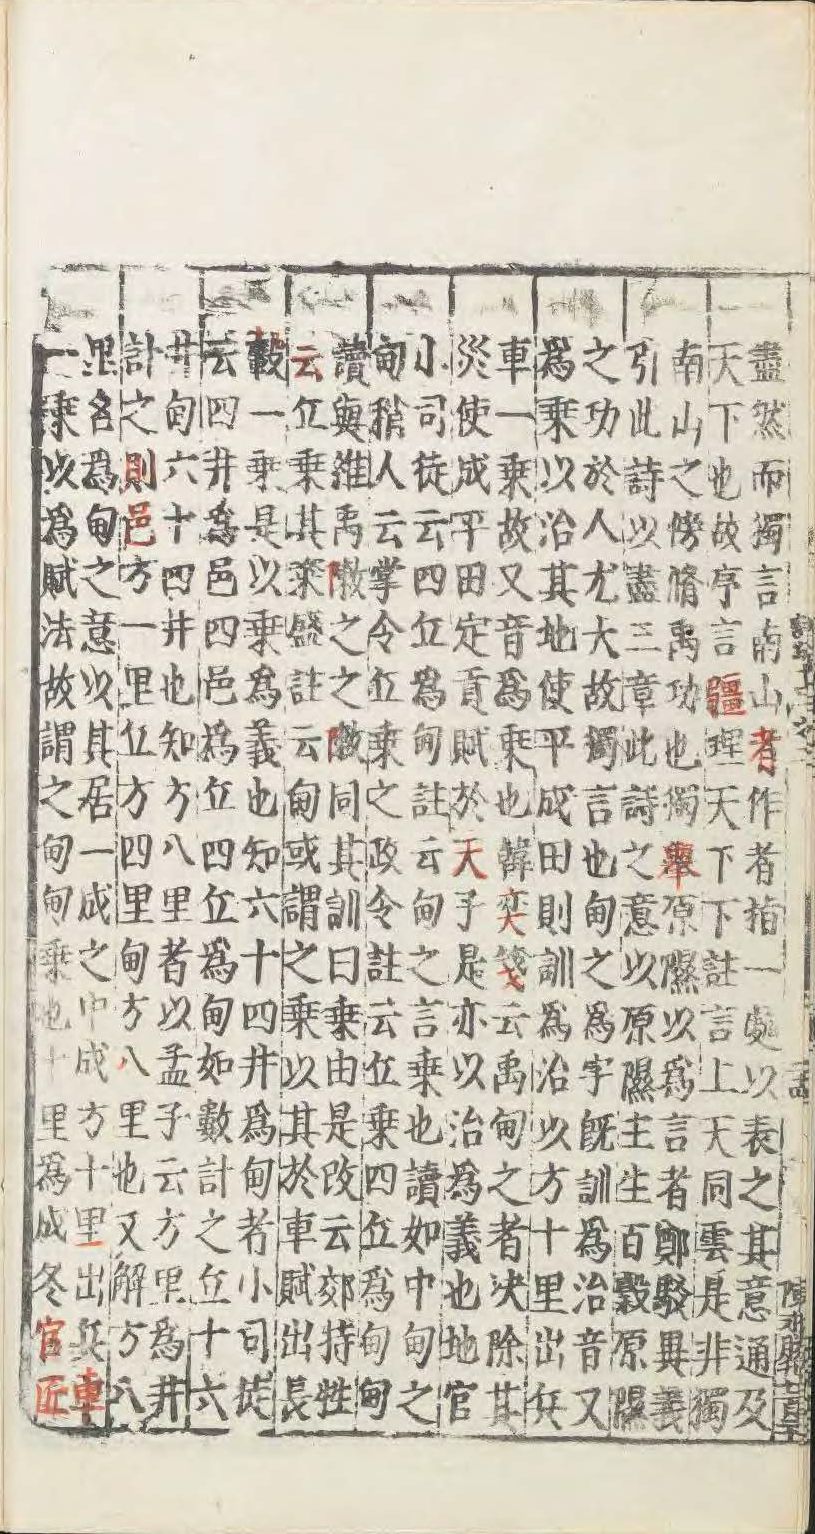 盡然而獨言南山者作者指一處以表之其意通及
天下也故序言疆理天下下註言上天同雲是非獨
南山之傍脩禹功也獨舉原隰以爲言者鄭駁異義
引此詩以盡三章此詩之意以原隰主生百穀原隰
之功於人尤大故獨言也甸之爲字旣訓爲治音又
爲乗以治其地使平成田則訓爲治以方十里出兵
車一乗故又音爲乗也韓奕箋云禹甸之者决除其
災使成平田定貢賦於天子是亦以治爲義也地官
小司徒云四丘爲甸註云甸之言乗也讀如中甸之
甸稍人云掌令丘乗之政令註云丘乗四丘爲甸甸
讀與維禹敶之之敶同其訓曰乗由是改云郊特牲
云丘乗其粢盛註云甸或謂之乗以其於車賦出長
轂一乗是以乗爲義也知六十四井爲甸者小司徒
云四井爲邑四邑爲丘四丘爲甸如數計之丘十六
井甸六十四井也知方八里者以孟子云方里爲井
計之則邑方一里丘方四里甸方八里也又解方八
里名爲甸之意以其居一成之中成方十里出兵車
一乗以爲賦法故謂之甸甸乗也十里爲成冬官匠